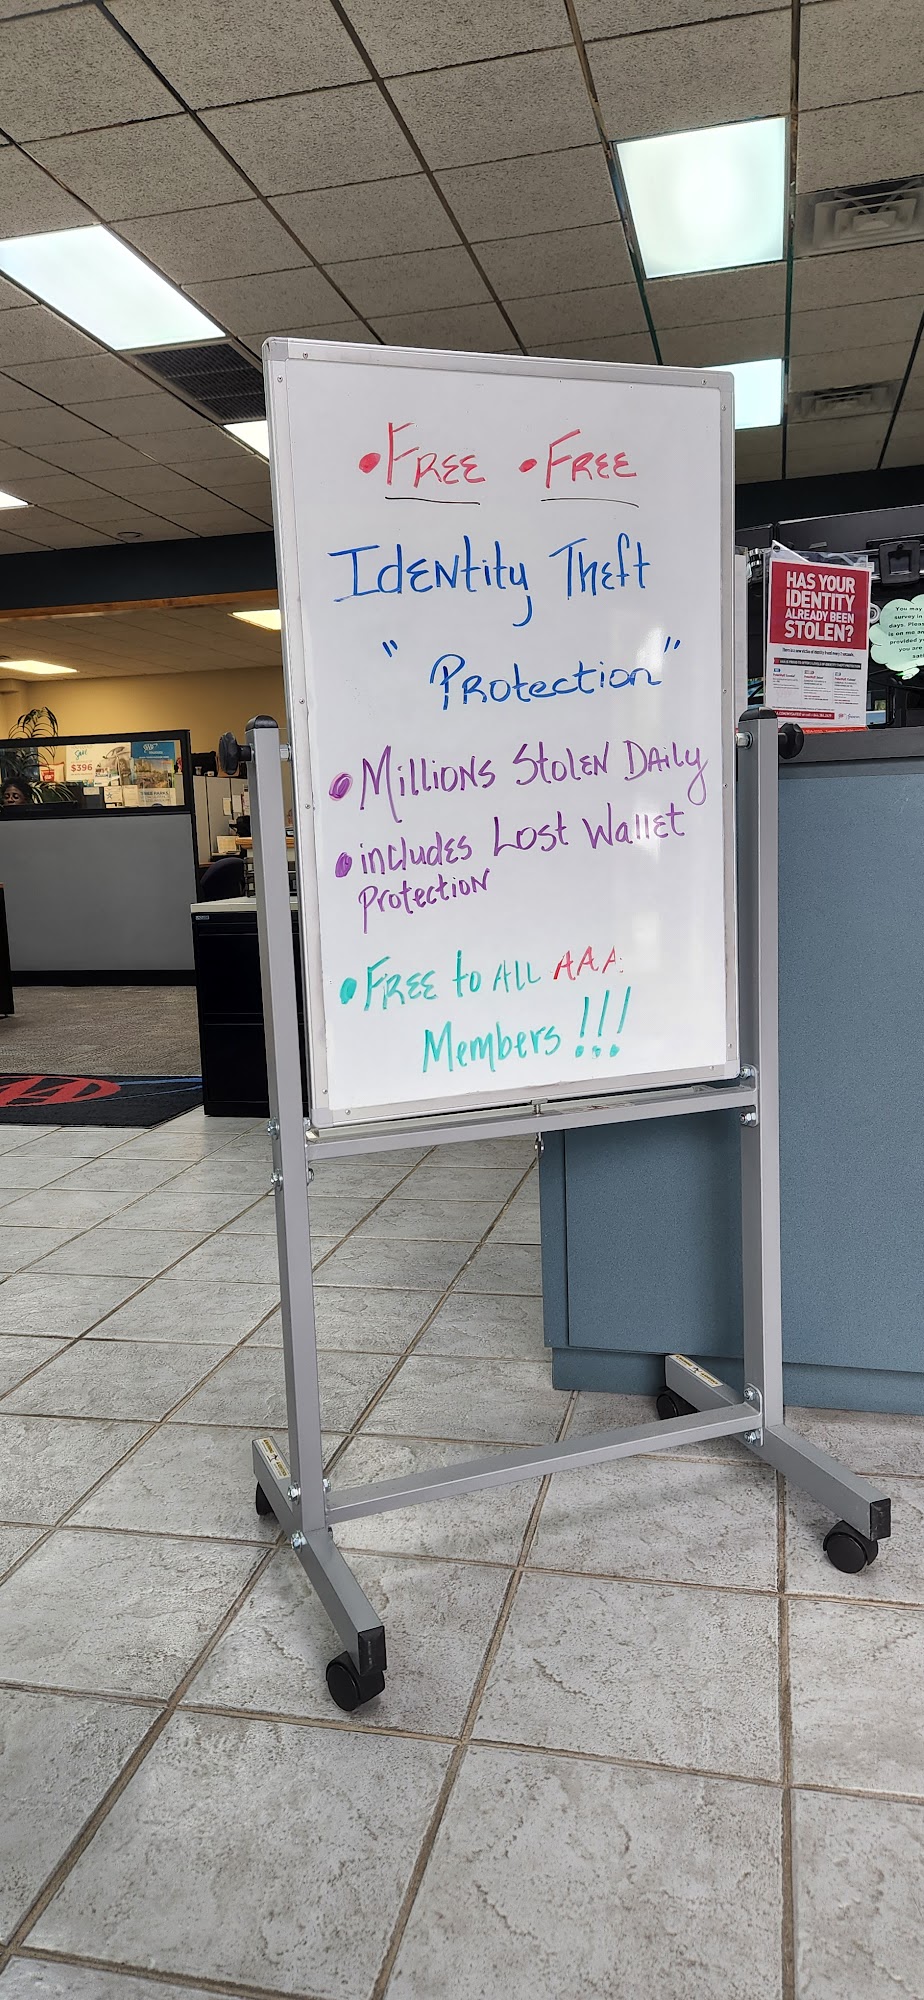 • FREE • FREE
IdENtity Theft
" PROtection"
• Millions StolEN DAily
• includes Lost Wallet
Protection
• FREE to ALL AAA
Members !!!
HAS YOUR
IDENTITY
ALREADY BEEN
STOLEN?
You may
survey in
days. Pleas
is on me an
provided y
you are
$396